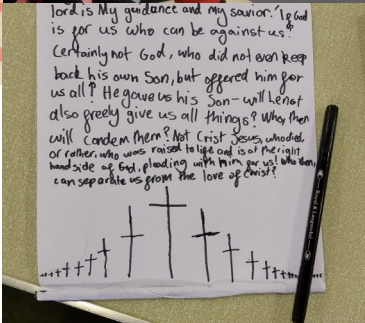 lord is My guidance and my savior. "If God
is for us who can be against us?
Certainly not God, who did not even keep
back his own Son, but offered him for
us all! He gave us his Son - will he not
also freely give us all things? Who, then
will condem them? Not Crist Jesus, who died
or rather, who was raised to life and is at the right
hand side of God, pleading with him for us! Who then,
can separate us from the love of Christ?